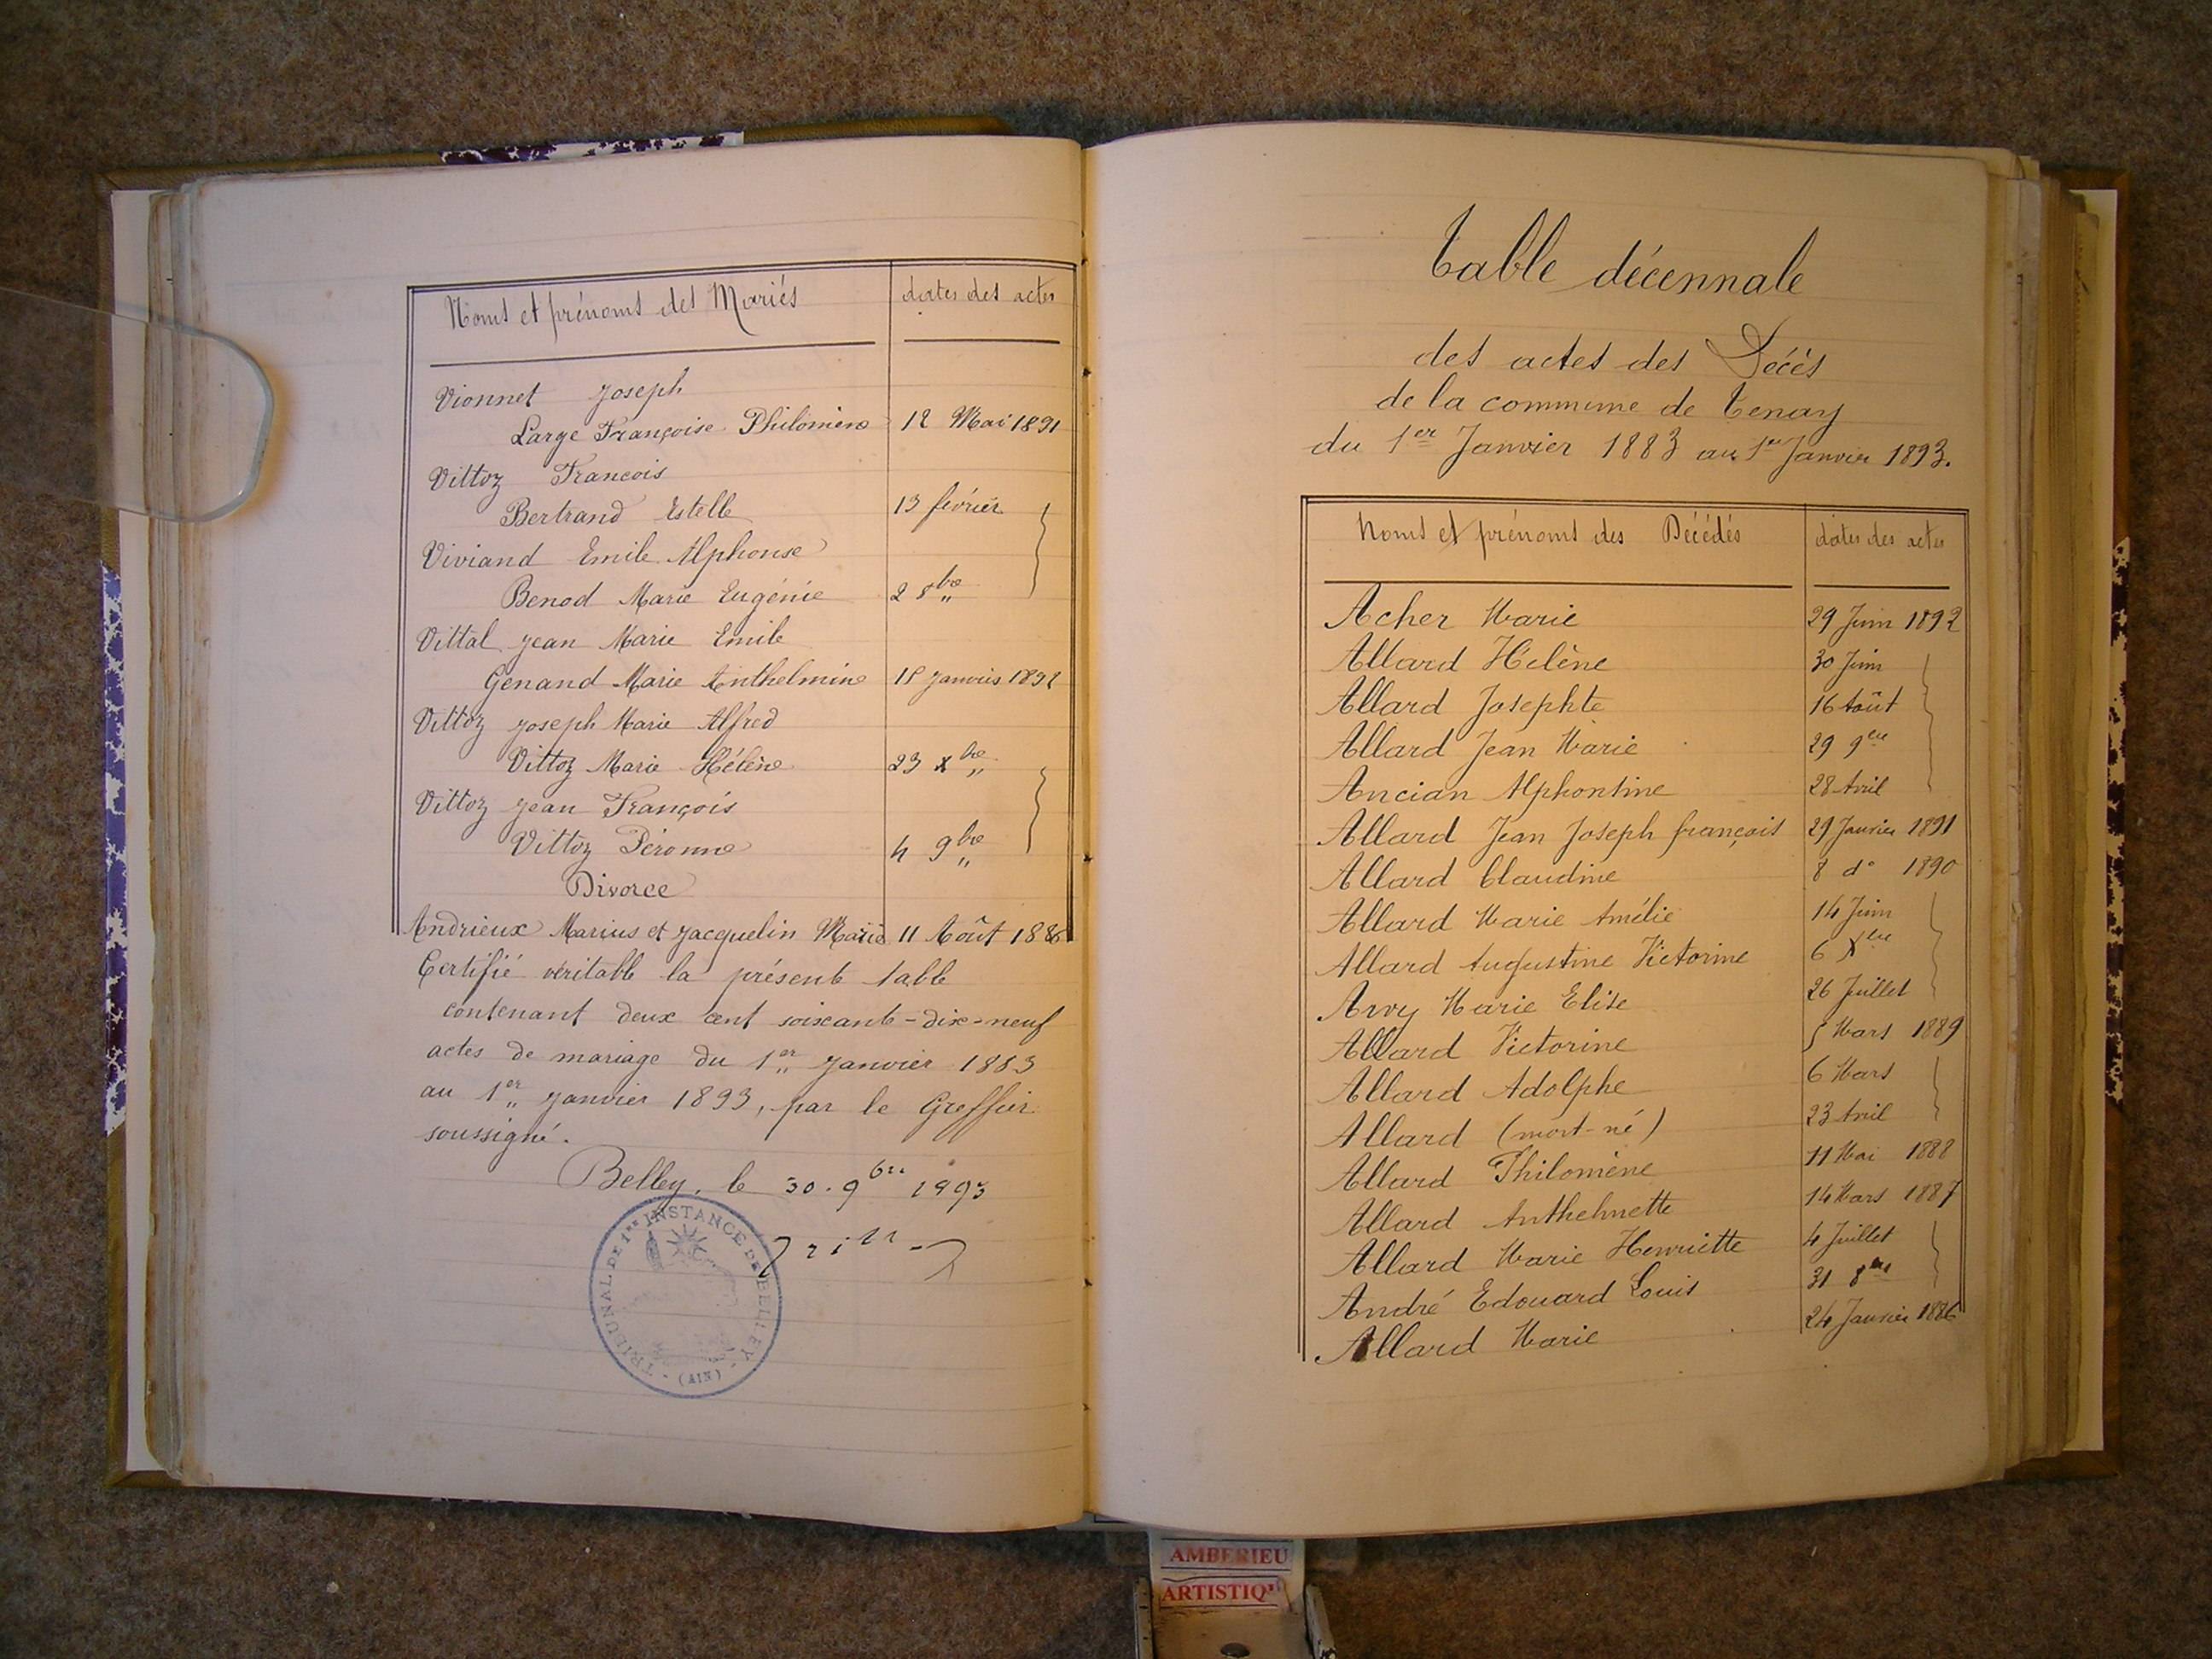 Noms et prénoms des Mariés dates des actes
Vionnet Joseph
Large Françoise Philomène 12 Mai 1891
Vittoz Francois
Bertrand Estelle 13 février
Viviand Emile Alphonse
Benod Marie Eugénie 2 8bre
Vittal Jean Marie Emile
Genand Marie Anthelmine 18 Janvier 1892
Vittoz Joseph Marie Alfred
Vittoz Marie Hélène 23 Xbre
Vittoz Jean François
Vittoz Péronne 4 9bre
Divorce
Andrieux Marius et Jacquelin Marie 11 Août 1886
Certifié véritable la présente table
contenant deux cent soixante-dix-neuf
actes de mariage du 1er Janvier 1883
au 1er Janvier 1893, par le Greffier
soussigné.
Belley, le 30. 9bre 1893
TRIBUNAL DE 1re INSTANCE DE BELLEY
(AIN)
Table décennale
des actes des Décès
de la commune de Tenay
du 1er Janvier 1883 au 1er Janvier 1893.
Noms et prénoms des Décédés dates des actes
Acher Marie 29 Juin 1892
Allard Hélène 30 Juin
Allard Josephte 16 Août
Allard Jean Marie 29 9bre
Ancian Alphontine 28 Avril
Allard Jean Joseph françois 29 Janvier 1891
Allard Claudine 8 do 1890
Allard Marie Amélie 14 Juin
Allard Augustine Victorine 6 Xbre
Arvy Marie Elise 26 Juillet
Allard Victorine 5 Mars 1889
Allard Adolphe 6 Mars
Allard (mort-né) 23 Avril
Allard Philomène 11 Mai 1888
Allard Anthelmette 14 Mars 1887
Allard Marie Henriette 4 Juillet
André Edouard Louis 31 8bre
Allard Marie 24 Janvier 1886
AMBERIEU
ARTISTIQ